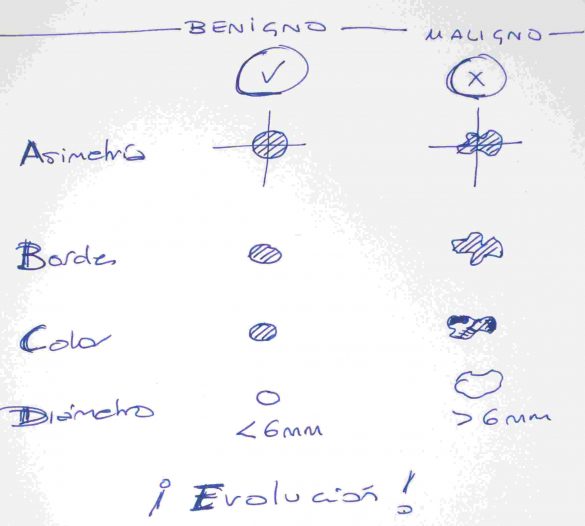 BENIGNO MALIGNO
✓ X
Asimetría
Bordes
Color
Diámetro <6mm >6mm
¡Evolución!